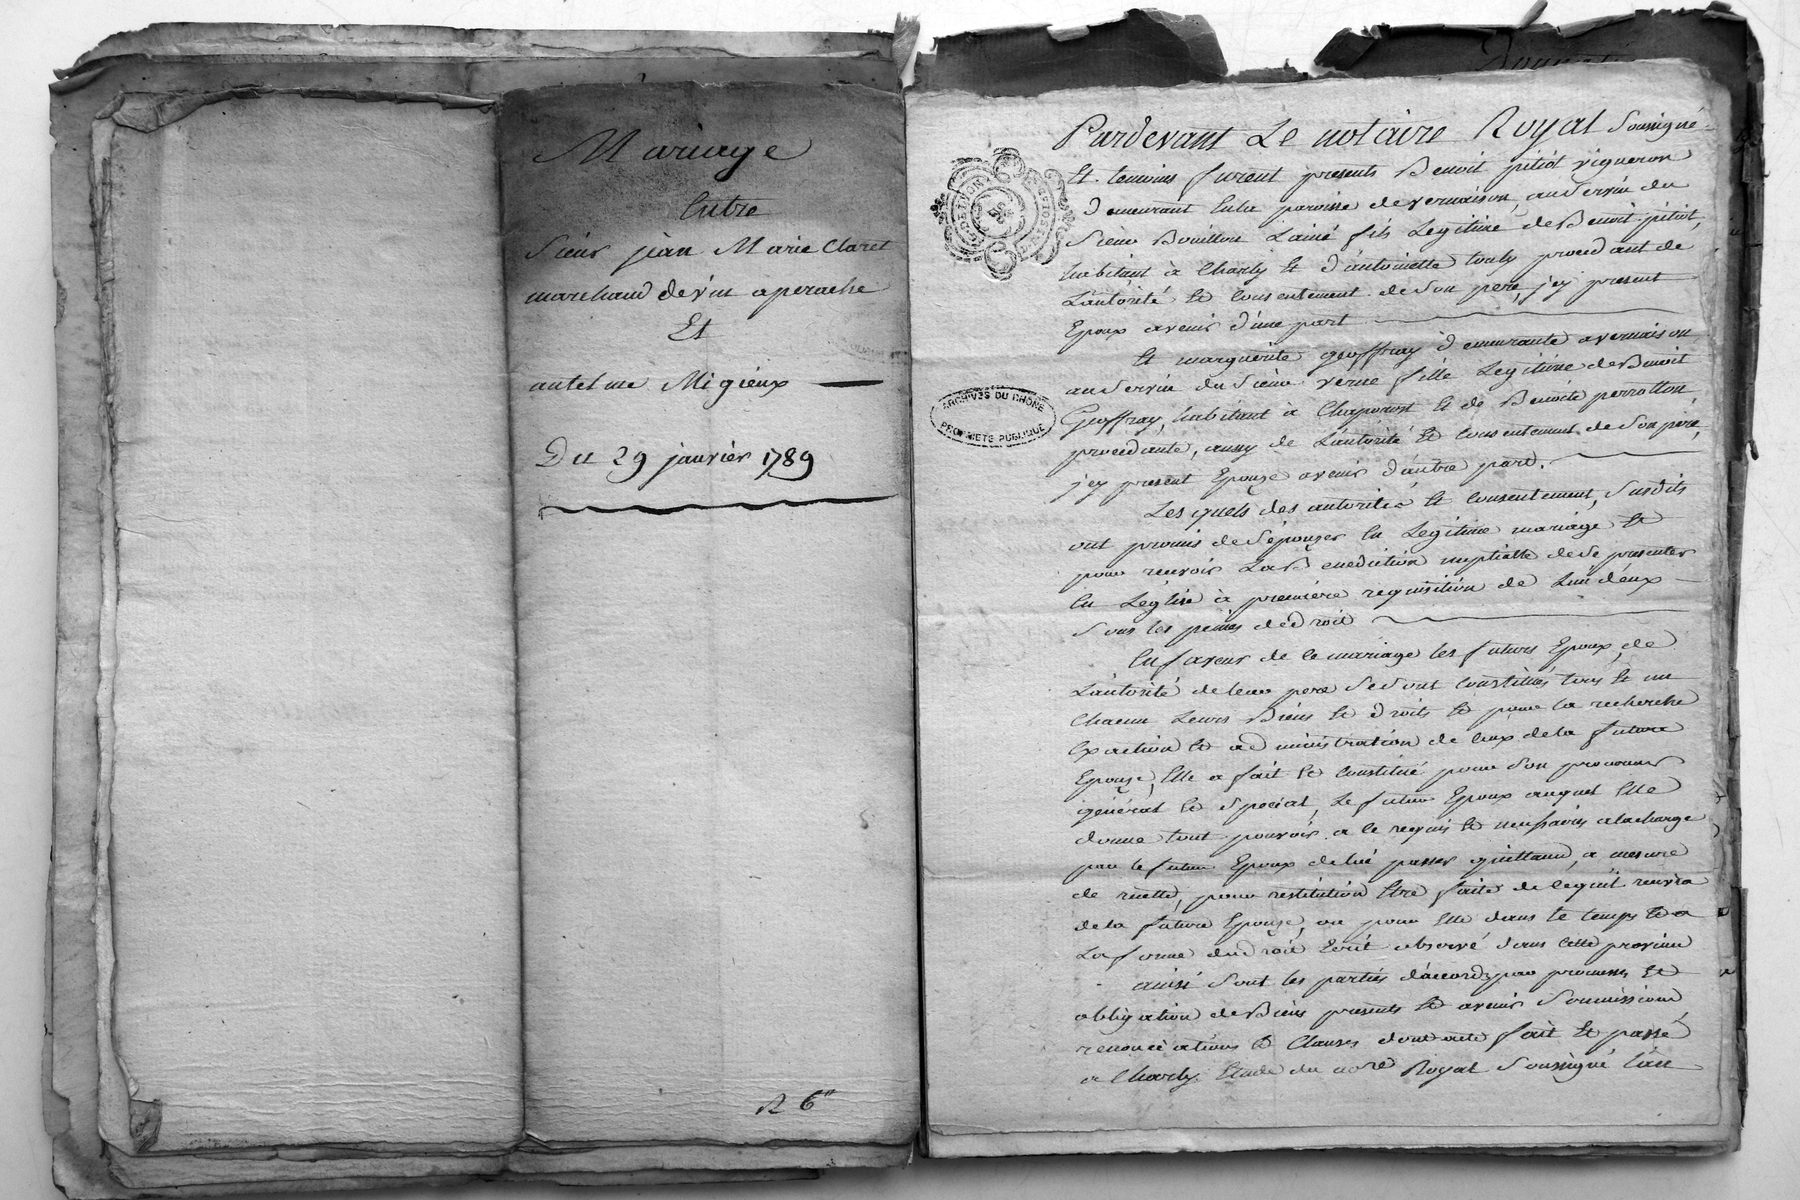 Mariage
Entre
Sieur jean Marie Claret
marchand devin aperache
Et
antelme Migieux
Du 29 janvier 1789
R 6#
Pardevant Le notaire Royal Soussigné
Et temoins furent presents Benoit pitiot vigneron
demeurant En la paroisse devernaison, auService du
Sieur Bouillon Lainé fils Legitime deBenoit pitiot,
habitant à Charly Et d'antoinette procedant de
L'autorité Et Consentement deSon pere, j'ey present
Epoux avenir d'une part
Et marguerite geoffray demeurante avernaison
auService duSieur verne fille Legitime deBenoit
Geoffray, habitant à Chaponost Et de Benoite perrotton,
procedante, aussy de L'autorité Et Consentement deSon pere,
j'ey present Epouze avenir d'autre part.
Les quels des autorités Et Consentement, Susdits
ont promis deSépouzer En Legitime mariage Et
pour recevoir LaBenediction nuptialle deSe presenter
En Léglise à premiere requisition de Lun deux
Sous les peines deDroit
En faveur de Ce mariage les futurs Epoux, de
L'autorité deleur pere SeSont Constitués tous Et un
Chacun Leurs Biens Et droits Et pour la recherche
Exaction Et administration de Ceux dela future
Epouze, Elle a fait Et Constitué pour Son procureur
général Et Special, Le futur Epoux auquel Elle
donne tout pouvoir a Ce requis Et necessaires alacharge
par le futur Epoux delui passer quittance, a mesure
de recette, pour restitution Etre faite de Cequil recevra
dela future Epouze, ou pour Elle dans le temps Et a
La forme duDroit Ecrit observé dans Cette province
ainsi Sont les parties d'accord par promesses Et
obligation deBiens presents Et avenir Soumissions
renonciations Et Clauses dont acte fait Et passé
a Charly Etude du nore Royal Soussigné L'an
ARCHIVES DU RHÔNE
PROPRIETE PUBLIQUE